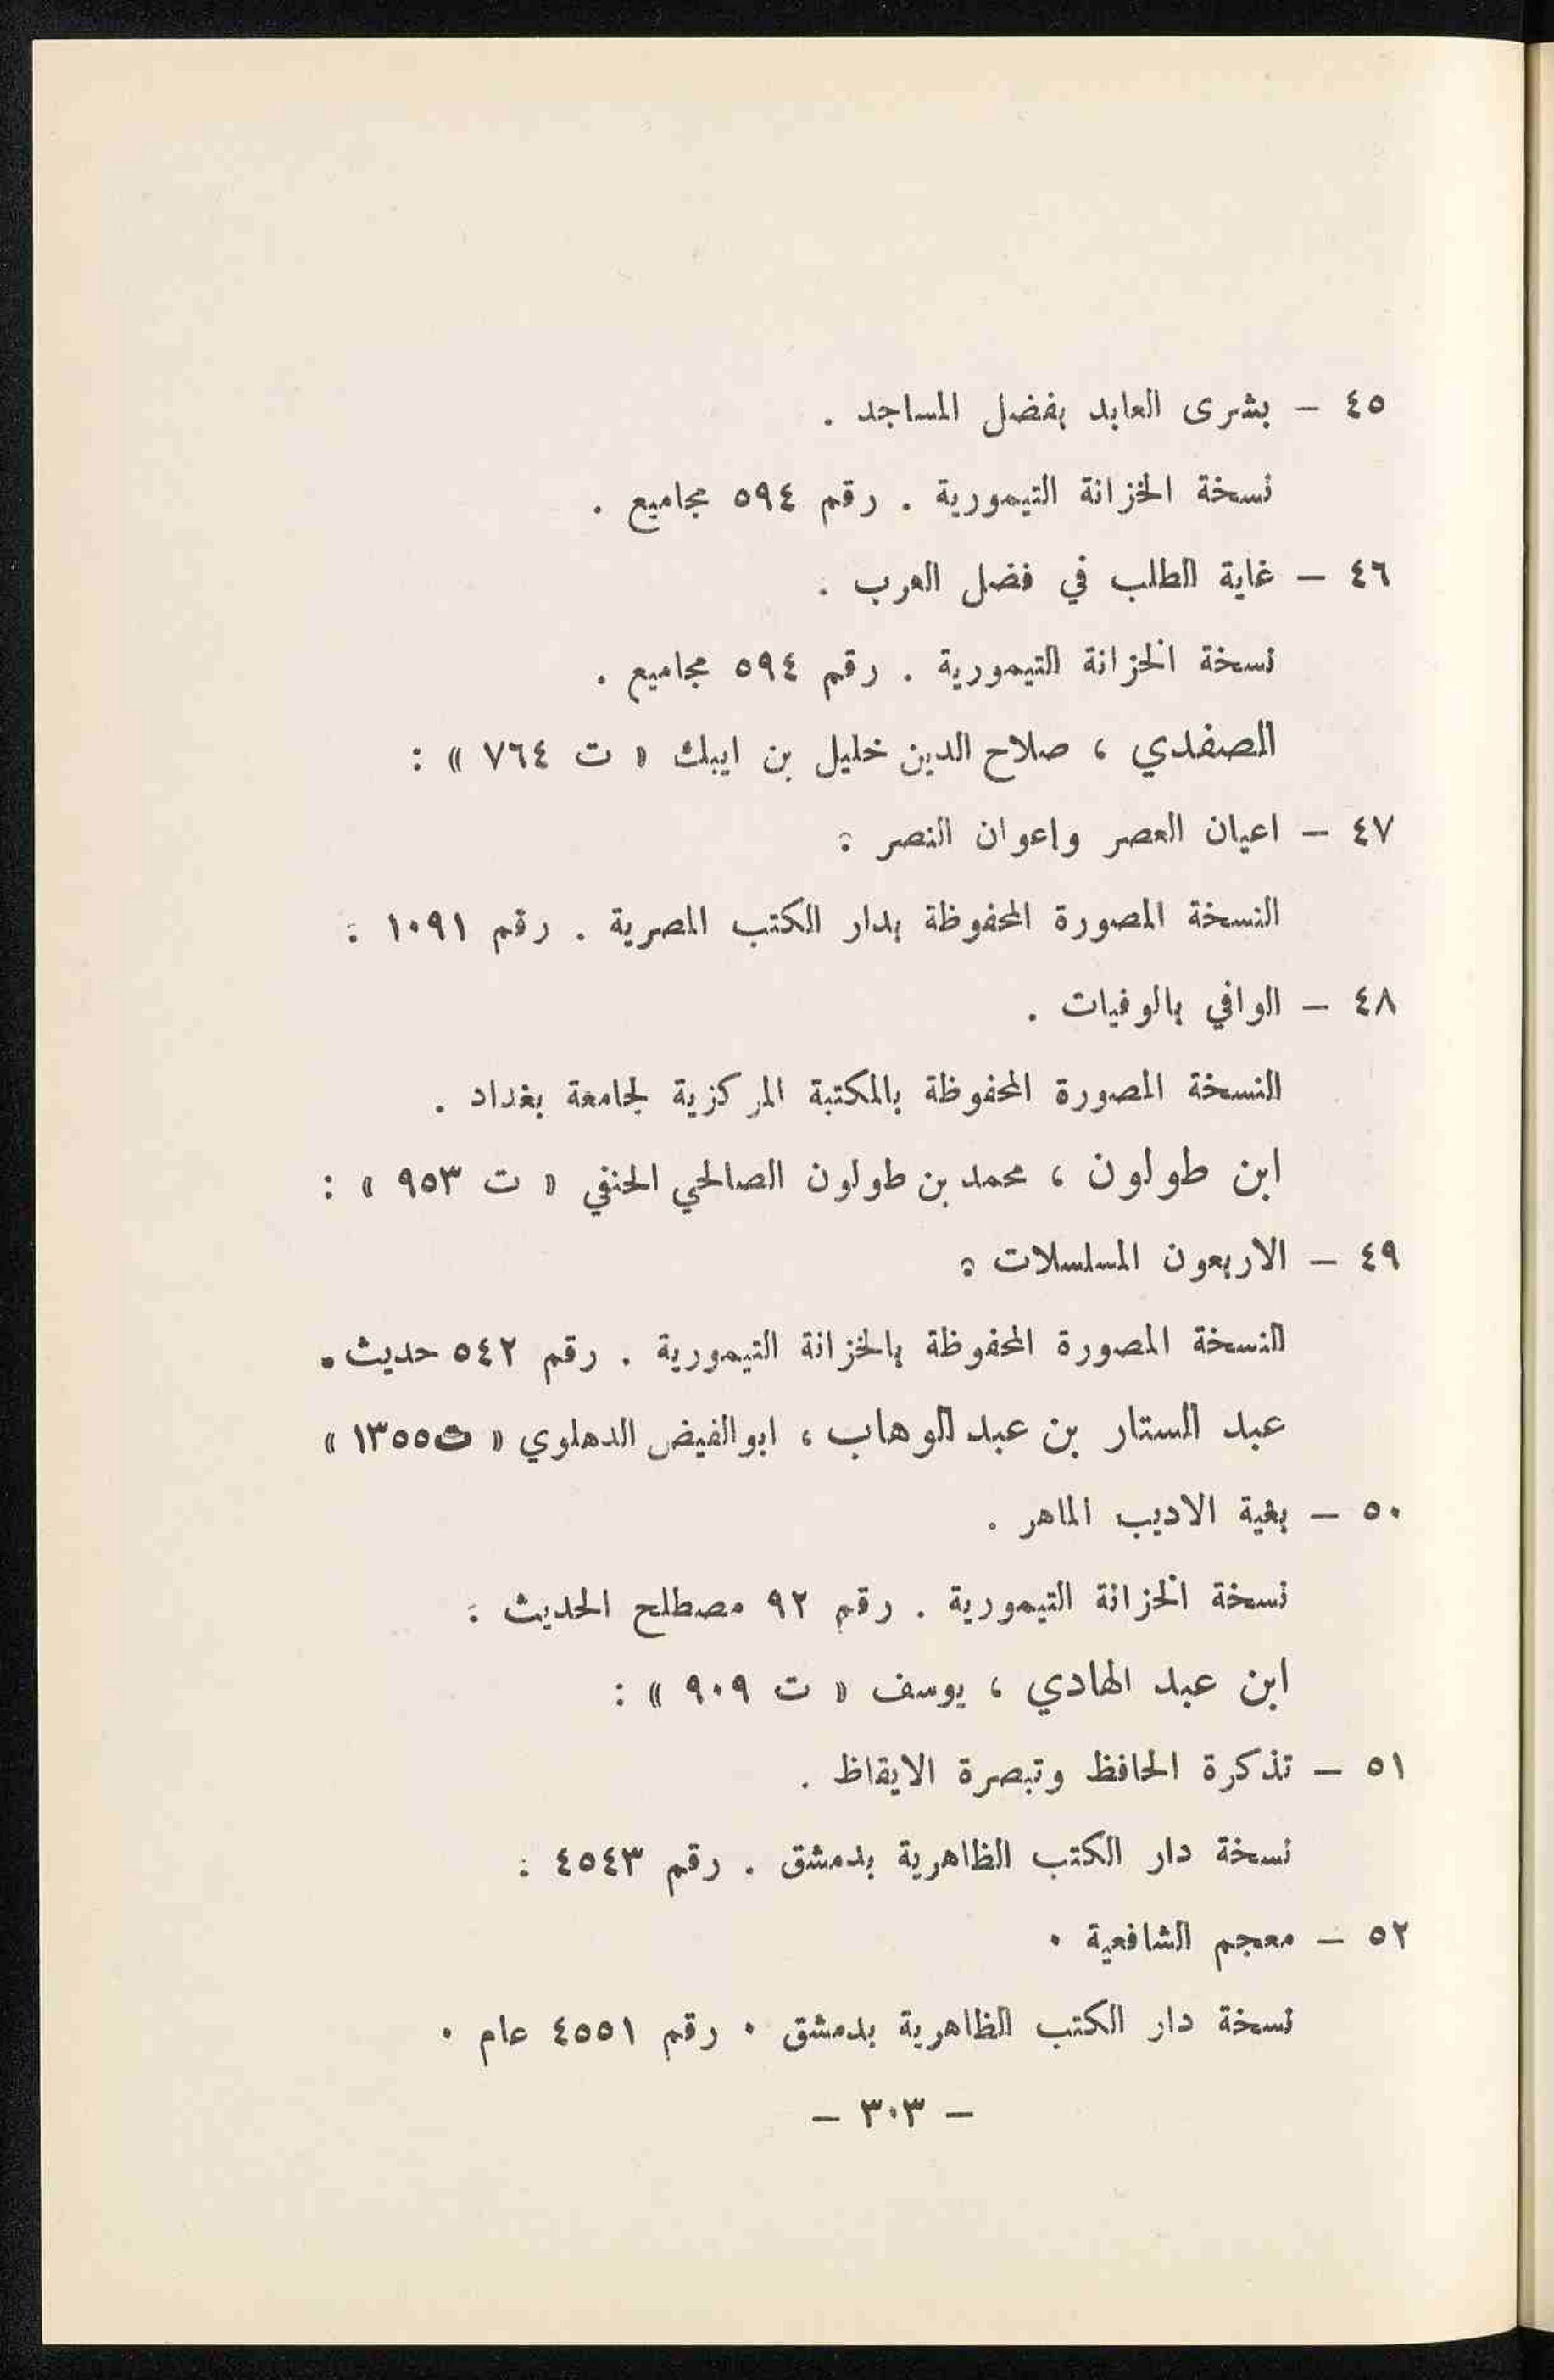 ٤٥ – بشرى العابد بفضل المساجد .
نسخة الخزانة التيمورية . رقم ٥٩٤ مجاميع .
٤٦ – غاية الطلب في فضل العرب .
نسخة الخزانة التيمورية . رقم ٥٩٤ مجاميع .
الصفدي ، صلاح الدين خليل بن ايبك « ت ٧٦٤ » :
٤٧ – اعيان العصر واعوان النصر .
النسخة المصورة المحفوظة بدار الكتب المصرية . رقم ١٠٩١ .
٤٨ – الوافي بالوفيات .
النسخة المصورة المحفوظة بالمكتبة المركزية لجامعة بغداد .
ابن طولون ، محمد بن طولون الصالحي الحنفي « ت ٩٥٣ » :
٤٩ – الاربعون المسلسلات .
النسخة المصورة المحفوظة بالخزانة التيمورية . رقم ٥٤٢ حديث .
عبد الستار بن عبد الوهاب ، ابو الفيض الدهلوي « ت ١٣٥٥ »
٥٠ – بغية الاديب الماهر .
نسخة الخزانة التيمورية . رقم ٩٢ مصطلح الحديث .
ابن عبد الهادي ، يوسف « ت ٩٠٩ » :
٥١ – تذكرة الحافظ وتبصرة الايقاظ .
نسخة دار الكتب الظاهرية بدمشق . رقم ٤٥٤٣ .
٥٢ – معجم الشافعية .
نسخة دار الكتب الظاهرية بدمشق . رقم ٤٥٥١ عام .
– ٣٠٣ –